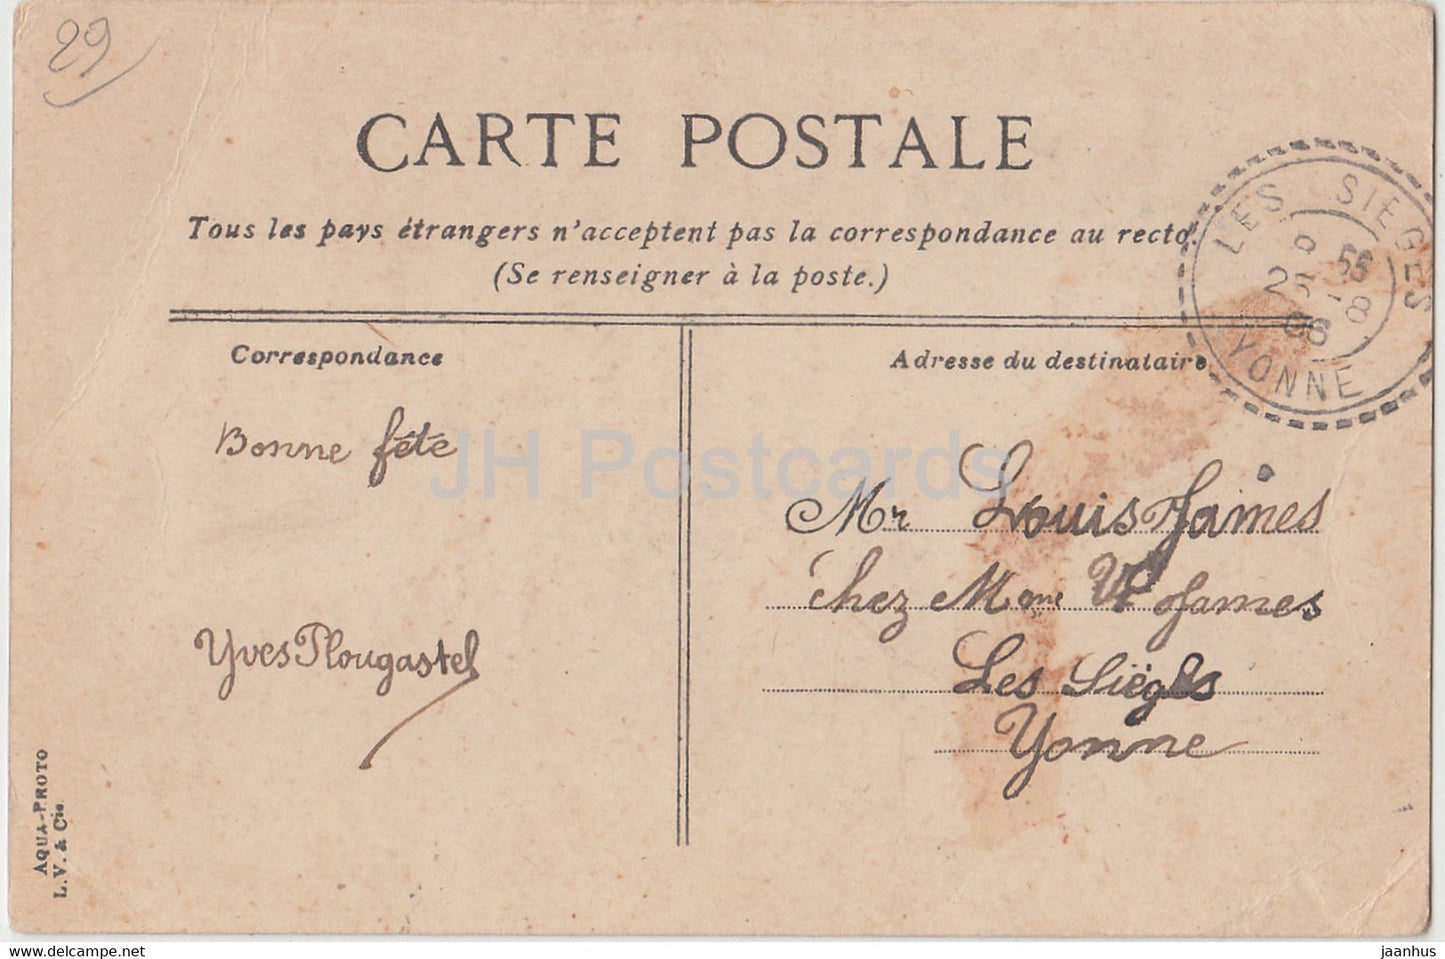 29
CARTE POSTALE
Tous les pays étrangers n'acceptent pas la correspondance au recto.
(Se renseigner à la poste.)
LES SIEGES
25 -8
08
YONNE
Correspondance
Adresse du destinataire
Bonne fête
Yves Plougastel
Mr Louis James
chez Mme Ve James
Les Sièges
Yonne
AQUA-PHOTO
L.V. & Cie
JH Postcards
https://www.delcampe.net
jaanhus